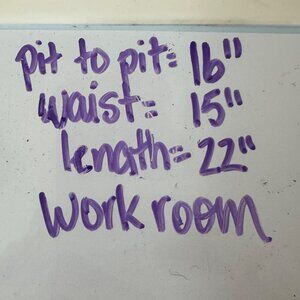 pit to pit= 16"
waist= 15"
length= 22"
Work room